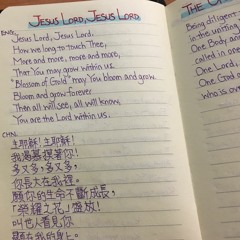 JESUS LORD, JESUS LORD
ENG:
Jesus Lord, Jesus Lord,
How we long to touch Thee,
More and more, more and more,
That You may grow within us.
"Blossom of Gold" may You bloom and grow.
Bloom and grow forever.
Then all will see, all will know,
You are the Lord within us.
CHN:
主耶穌！主耶穌！
我渴慕摸著你！
多又多，多又多，
你長大在我裡。
願你的生命不斷成長，
「榮耀之花」盛放！
叫世人看見你
顯在我的身上。
THE
Being diligent
in the uniting
One Body and
called in one
One Lord,
One God
who is ove